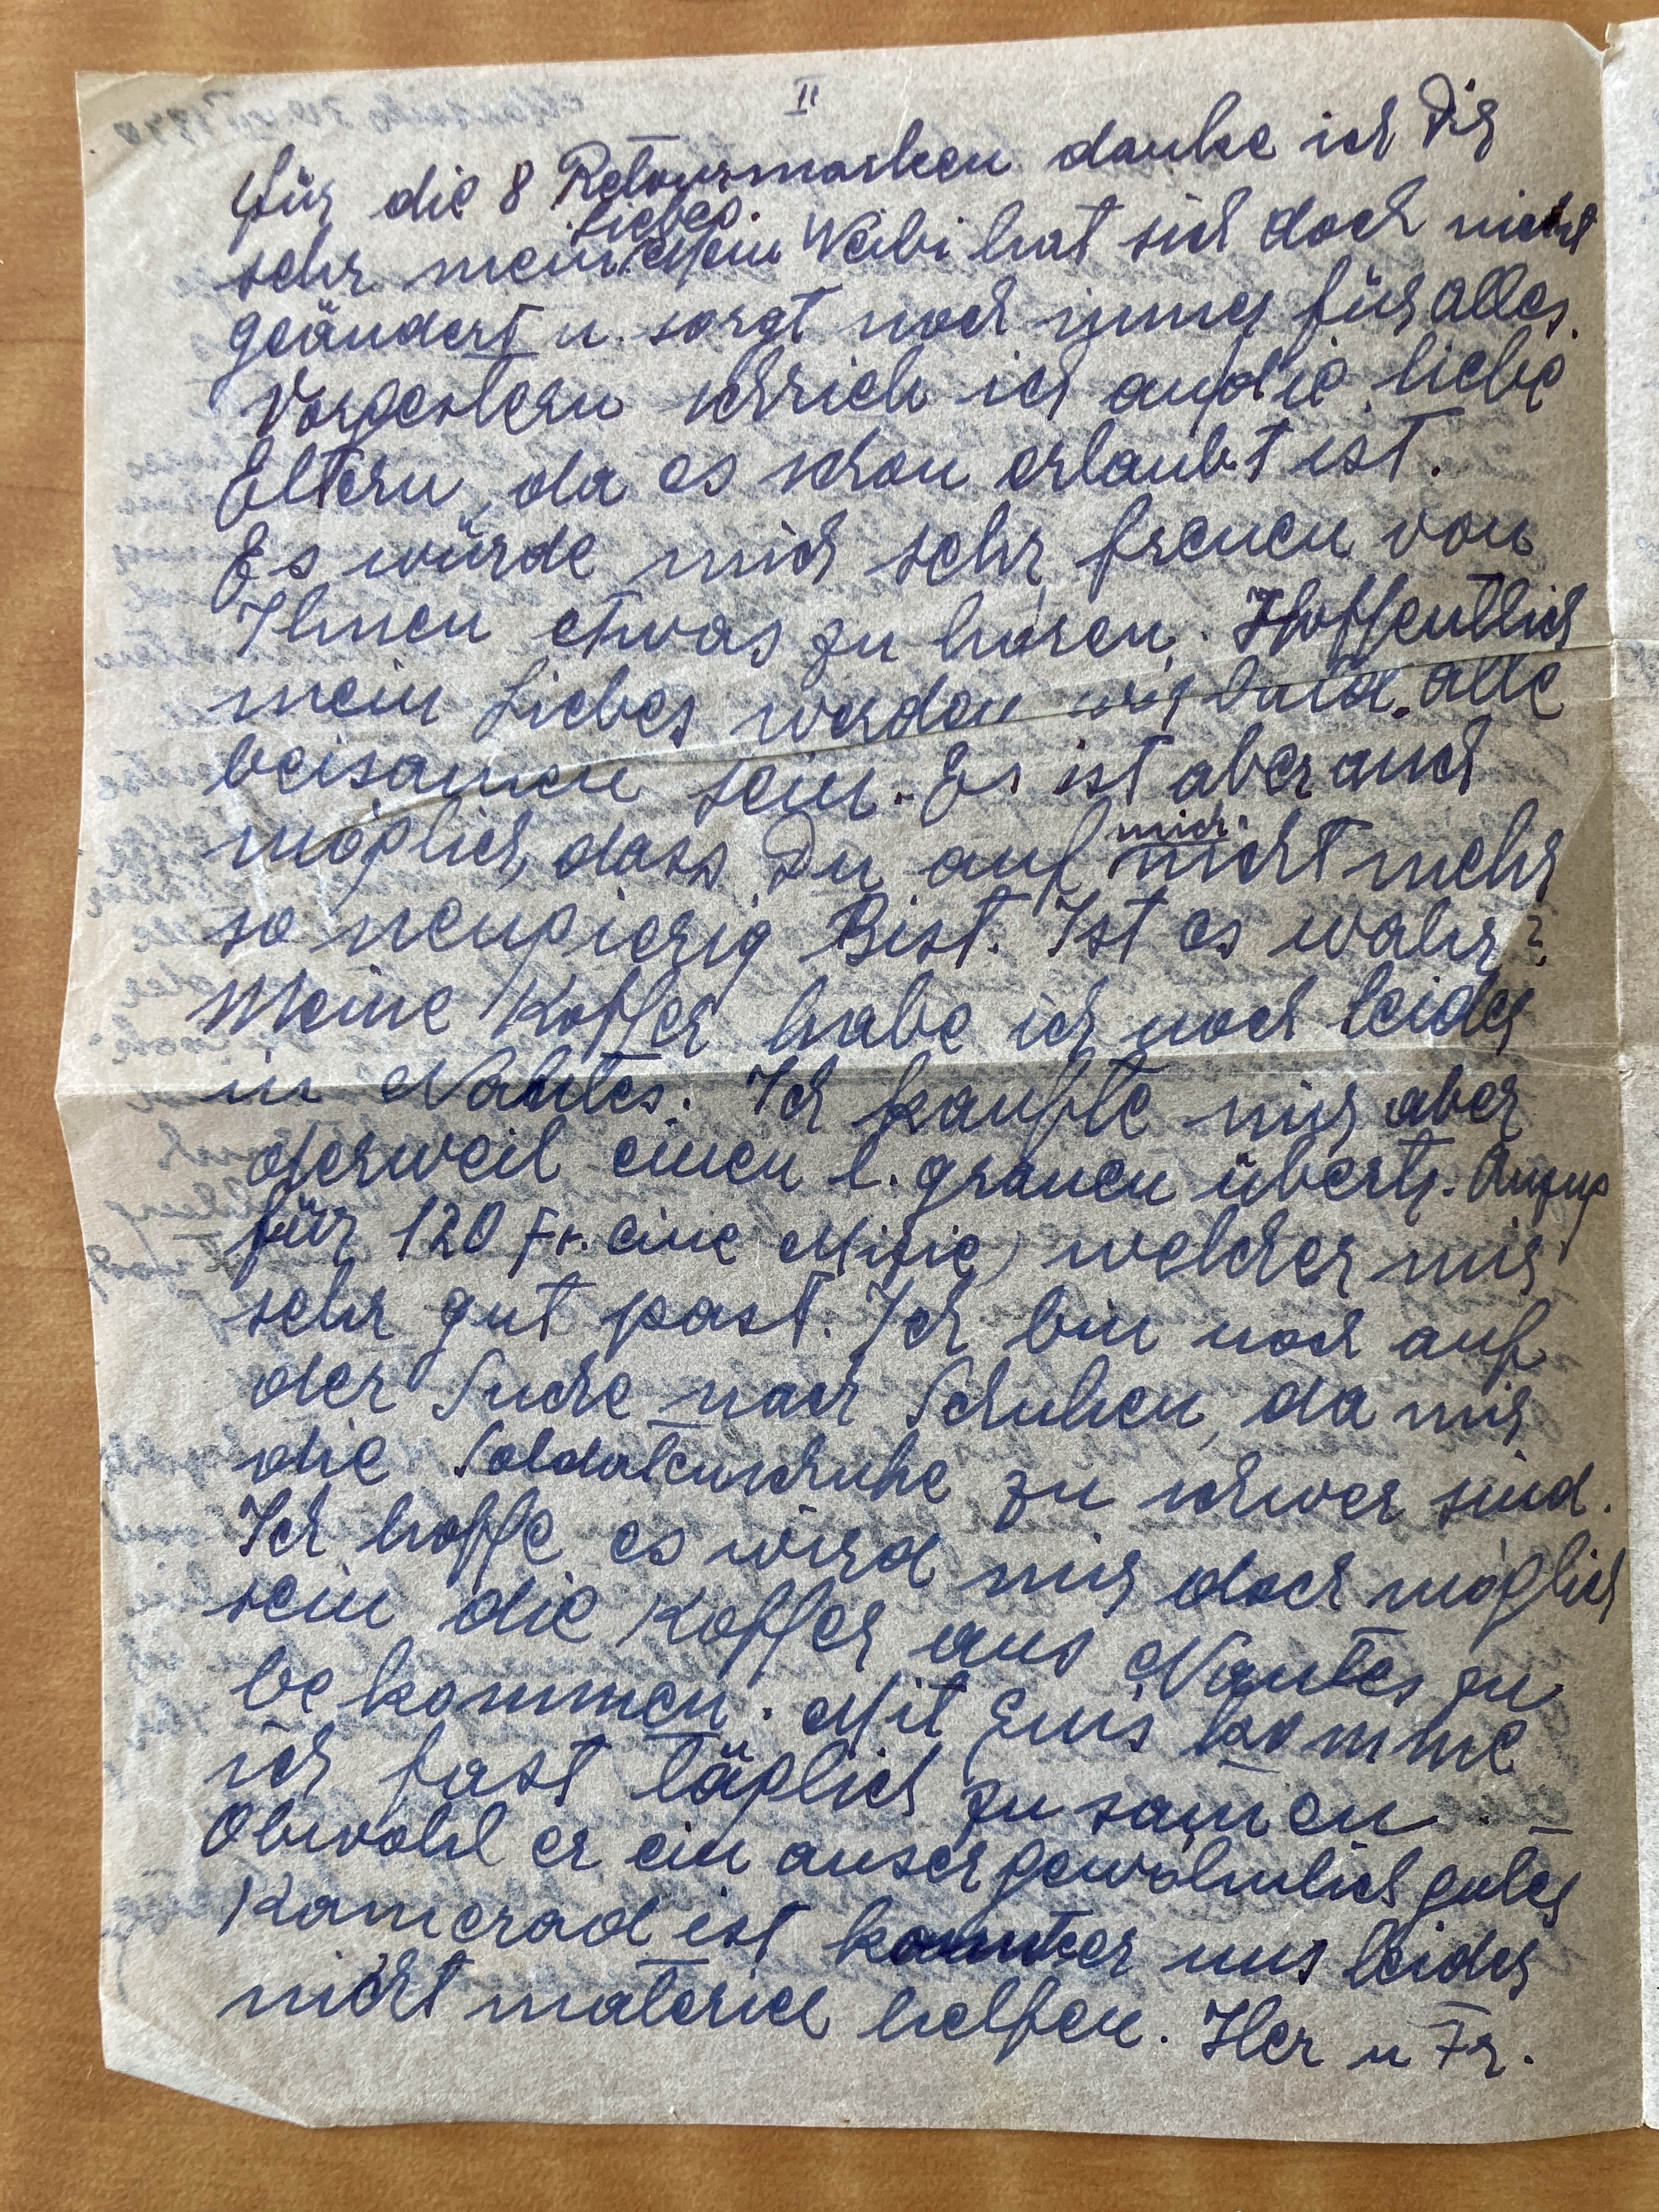 II
für die 8 Retourmarken danke ich Dir
liebes.
sehr mein Mein Weibi hat sich doch nicht
geändert u. sorgt noch immer für alles.
Vorgestern schrieb ich an die liebe
Eltern, da es schon erlaubt ist.
Es würde mich sehr freuen von
Ihnen etwas zu hören. Hoffentlich
mein Liebes werden wir bald alle
beisamen sein. Es ist aber auch
möglich, dass Du auf mich nicht mehr
so neugierig Bist. Ist es wahr?
Meine Koffer habe ich noch leider
in Nantes. Ich kaufte mir aber
derweil einen l. grauen übertr. Anzug
für 120 Fr. eine Mizie, welcher mir
sehr gut past. Ich bin noch auf
der Suche nach Schuhen, da mir
die Soldatenschuhe zu schwer sind.
Ich hoffe es wird mir doch möglich
sein die Koffer aus Nantes zu
bekommen. Mit Emis komme
ich fast täglich zusamen.
Obwohl er ein ausergewöhnlich guter
Kamerad ist kannter uns leider
nicht materiel helfen. Her u Fr.